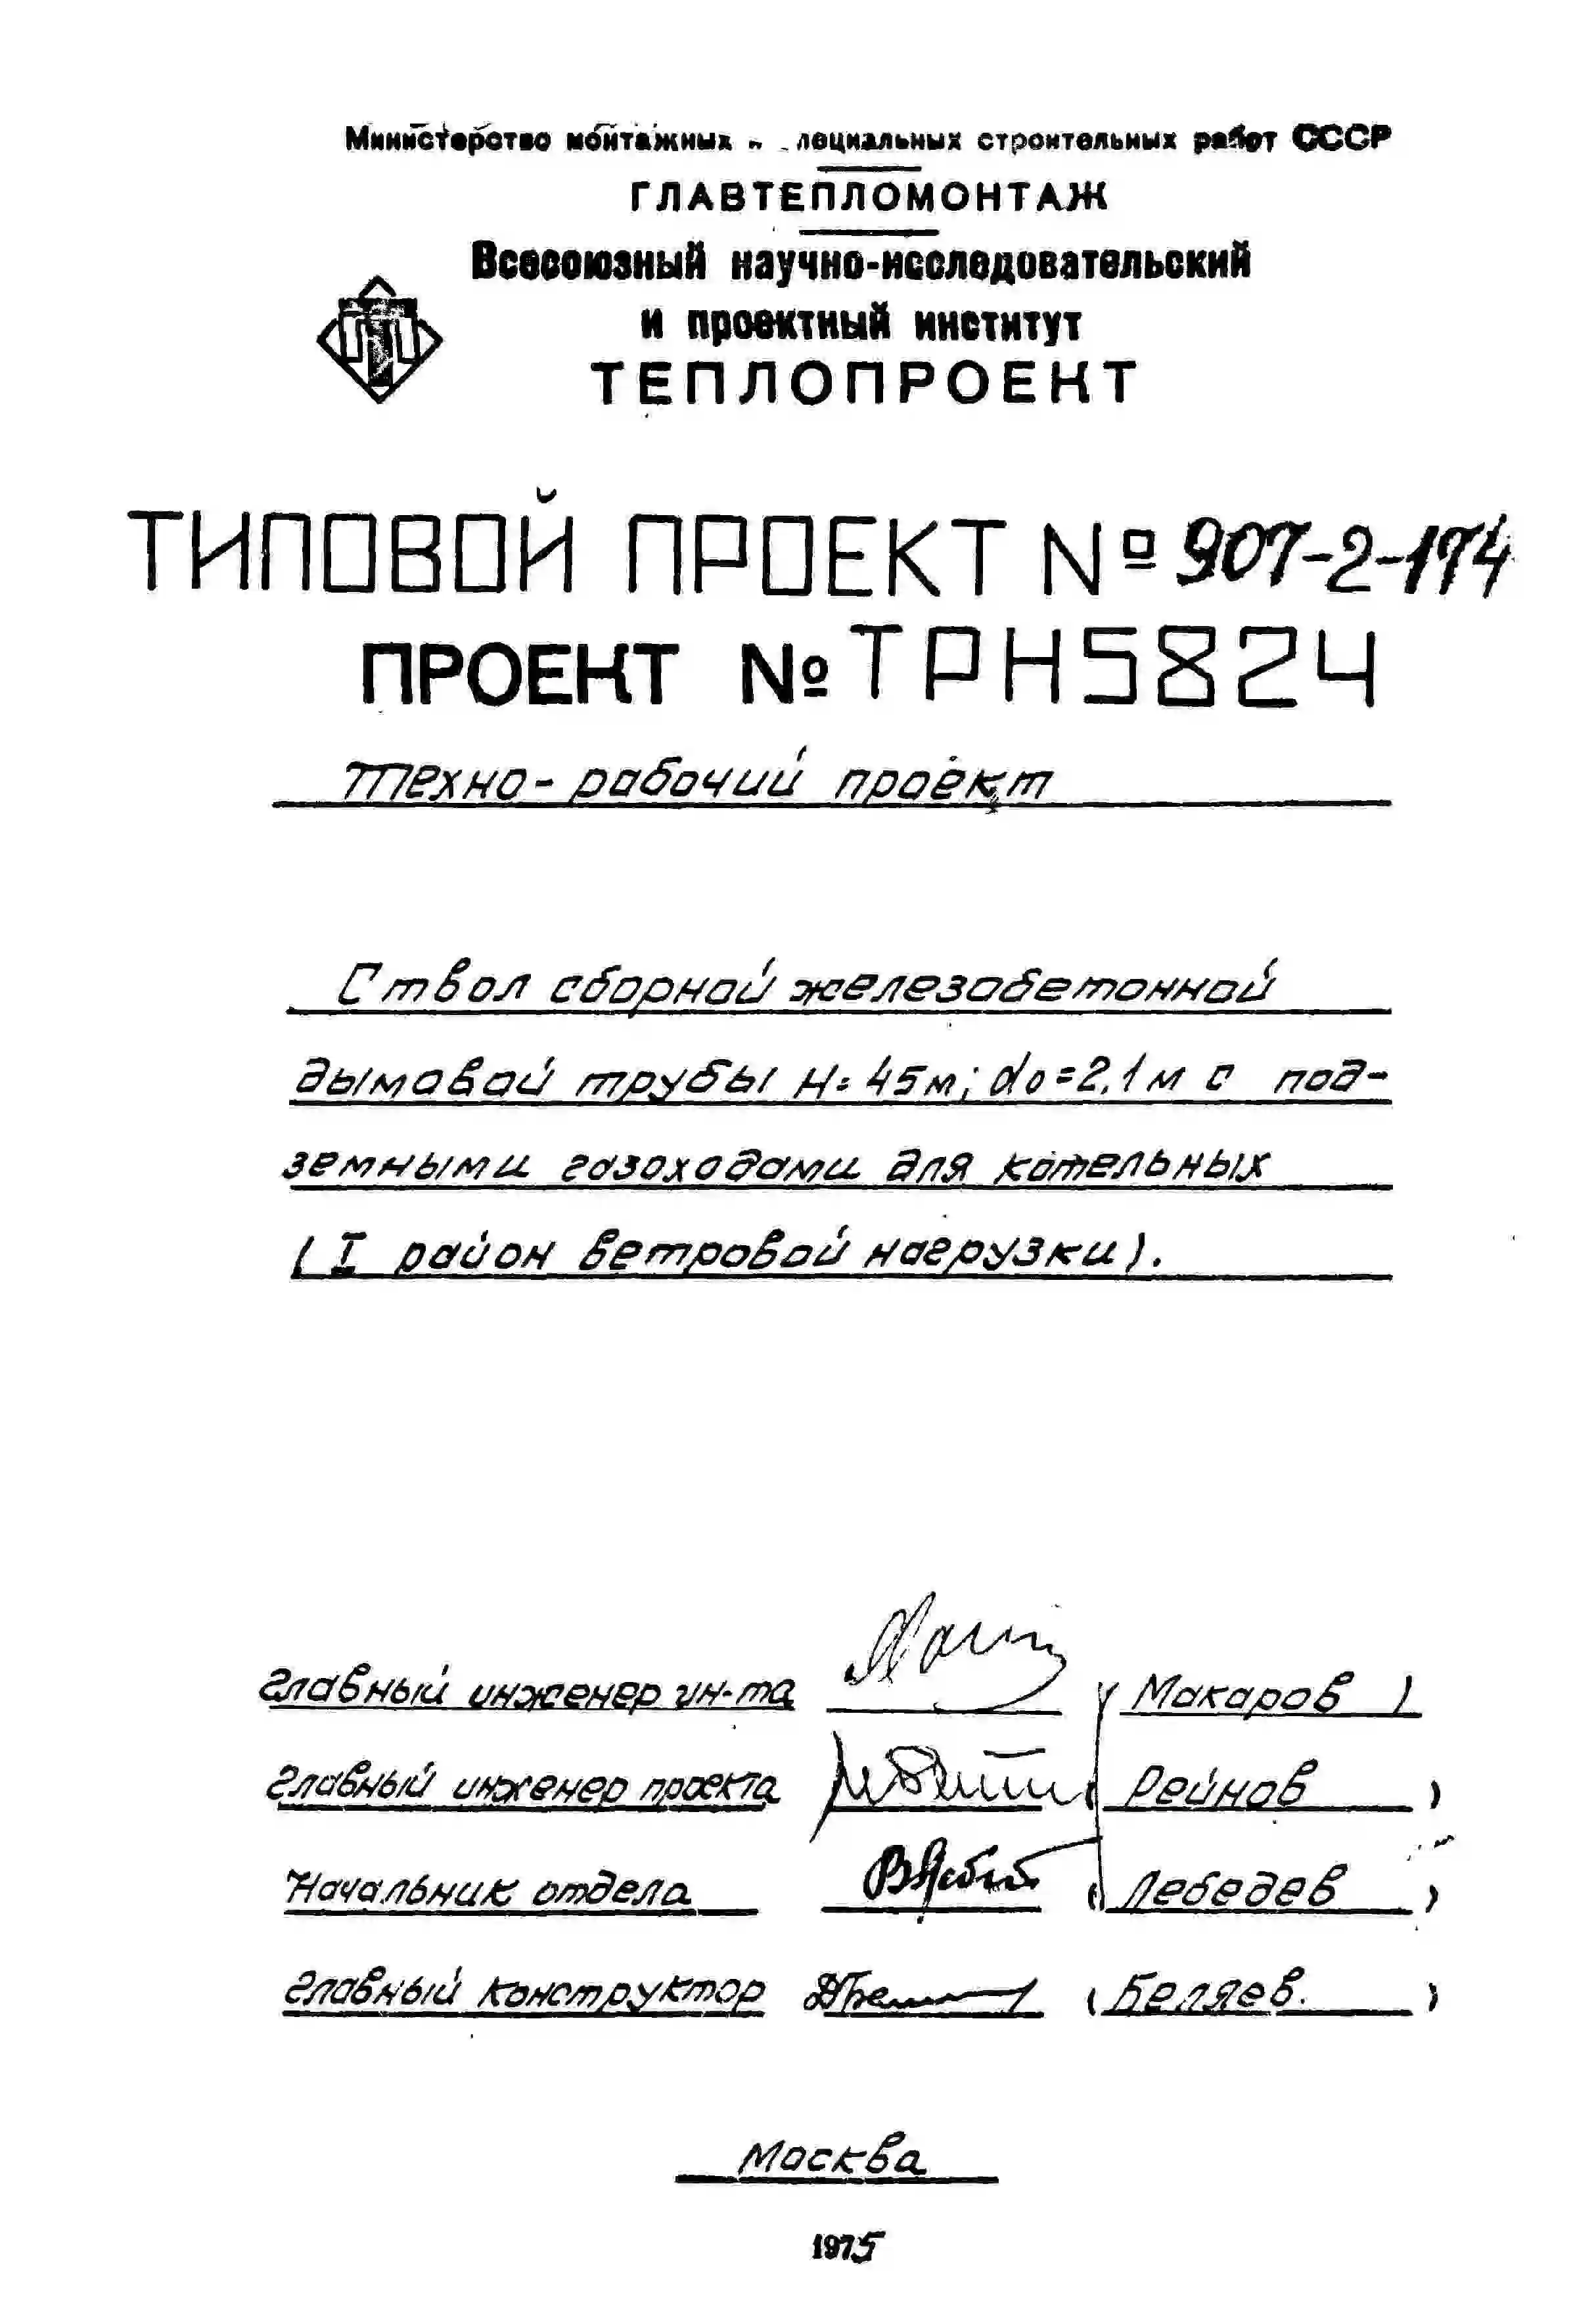 Министерство монтажных и специальных строительных работ СССР
ГЛАВТЕПЛОМОНТАЖ
Всесоюзный научно-исследовательский
и проектный институт
ТЕПЛОПРОЕКТ
ТИПОВОЙ ПРОЕКТ № 907-2-174
ПРОЕКТ № ТРН5824
Техно-рабочий проект
Ствол сборной железобетонной
дымовой трубы H=45м; do=2,1м с под-
земными газоходами для котельных
(I район ветровой нагрузки).
Главный инженер ин-та (Макаров)
Главный инженер проекта (Рейнов)
Начальник отдела (Лебедев)
Главный конструктор (Беляев.)
Москва
1975